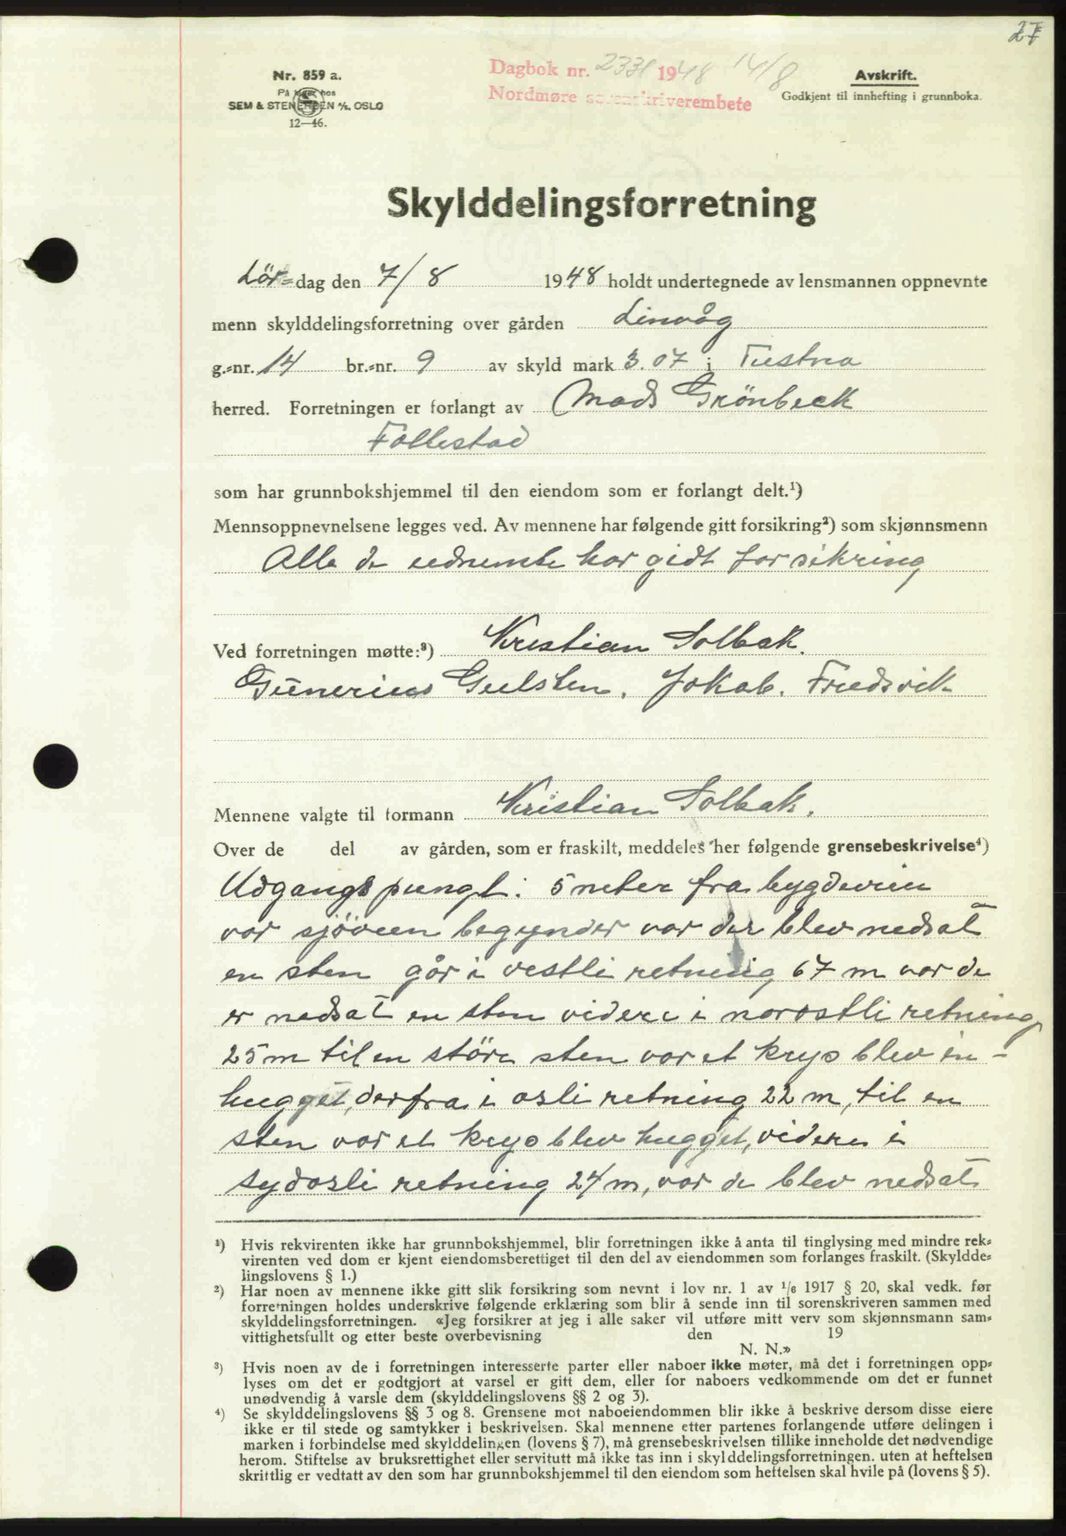 27
Nr. 859 a.
På lager hos
SEM & STENERSEN A/S, OSLO
12—46.
Dagbok nr. 2331 1948 14/8
Nordmøre sorenskriverembete
Avskrift.
Godkjent til innhefting i grunnboka.
Skylddelingsforretning
Lör-dag den 7/8 1948 holdt undertegnede av lensmannen oppnevnte
menn skylddelingsforretning over gården Linvåg
g.-nr. 14 br.-nr. 9 av skyld mark 3.07 i Tustna
herred. Forretningen er forlangt av Mads Grönbeck
Follestad
som har grunnbokshjemmel til den eiendom som er forlangt delt.¹)
Mennsoppnevnelsene legges ved. Av mennene har følgende gitt forsikring²) som skjønnsmenn
Alle de udnemte har gidt forsikring
Ved forretningen møtte:³) Kristian Solbak.
Gunerius Gulsten. Jokab. Fredsvik
Mennene valgte til formann Kristian Solbak.
Over de del av gården, som er fraskilt, meddeles her følgende grensebeskrivelse⁴)
Udgangspungt: 5 meter fra bygdevein
vor sjöveen begynder vor der blev nedsat
en sten går i vestli retning 67 m vor de
er nedsat en sten videre i norostli retning
25 m til en störe sten vor et krys blev in-
hugget, derfra i osli retning 22 m, til en
sten vor et krys blev hugget, videre i
sydosli retning 24 m, vor de blev nedsat
¹) Hvis rekvirenten ikke har grunnbokshjemmel, blir forretningen ikke å anta til tinglysing med mindre rek-
virenten ved dom er kjent eiendomsberettiget til den del av eiendommen som forlanges fraskilt. (Skyldde-
lingslovens § 1.)
²) Har noen av mennene ikke gitt slik forsikring som nevnt i lov nr. 1 av 1/6 1917 § 20, skal vedk. før
forretningen holdes underskrive følgende erklæring som blir å sende inn til sorenskriveren sammen med
skylddelingsforretningen. «Jeg forsikrer at jeg i alle saker vil utføre mitt verv som skjønnsmann sam-
vittighetsfullt og etter beste overbevisning den 19
N. N.»
³) Hvis noen av de i forretningen interesserte parter eller naboer ikke møter, må det i forretningen opp-
lyses om det er godtgjort at varsel er gitt dem, eller for naboers vedkommende om det er funnet
unødvendig å varsle dem (skylddelingslovens §§ 2 og 3).
⁴) Se skylddelingslovens §§ 3 og 8. Grensene mot naboeiendommen blir ikke å beskrive dersom disse eiere
ikke er til stede og samtykker i beskrivelsen. Skal mennene etter partenes forlangende utføre delingen i
marken i forbindelse med skylddelingen (lovens § 7), må grensebeskrivelsen tillike inneholde det nødvendige
herom. Stiftelse av bruksrettighet eller servitutt må ikke tas inn i skylddelingsforretningen. uten at heftelsen
skriftlig er vedtatt av den som har grunnbokshjemmel til den eiendom som heftelsen skal hvile på (lovens § 5).